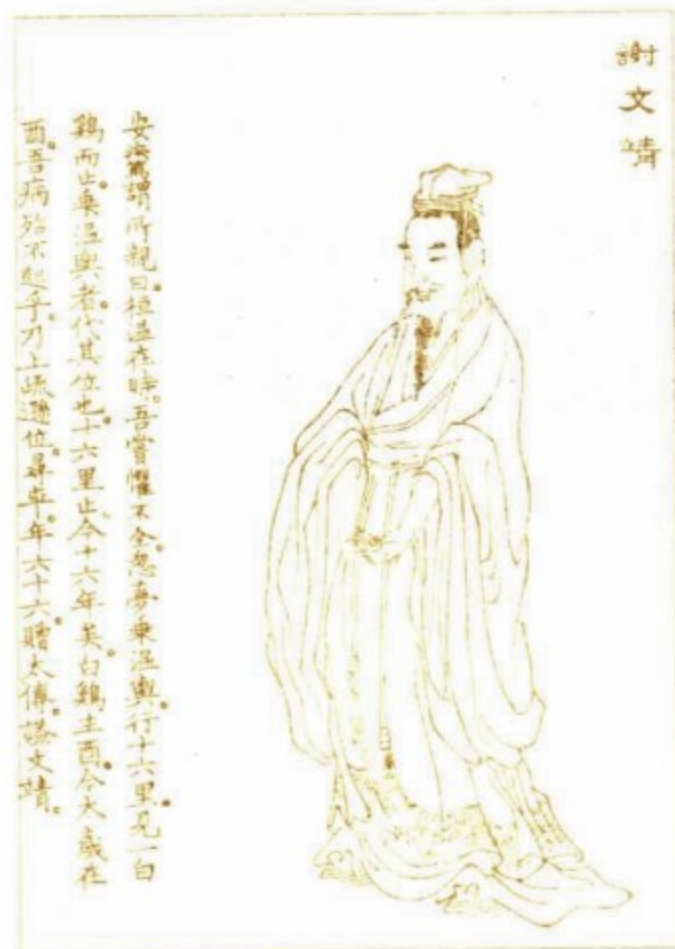 謝文靖
安疾篤謂所親曰。桓溫在時。吾嘗懼不全。忽夢乘溫輿。行十六里。見一白
鷄而止。乘溫輿者。代其位也。十六里止。今十六年矣。白鷄主酉。今太歲在
酉。吾病殆不起乎。乃上疏遜位。尋卒。年六十六。贈太傅。諡文靖。